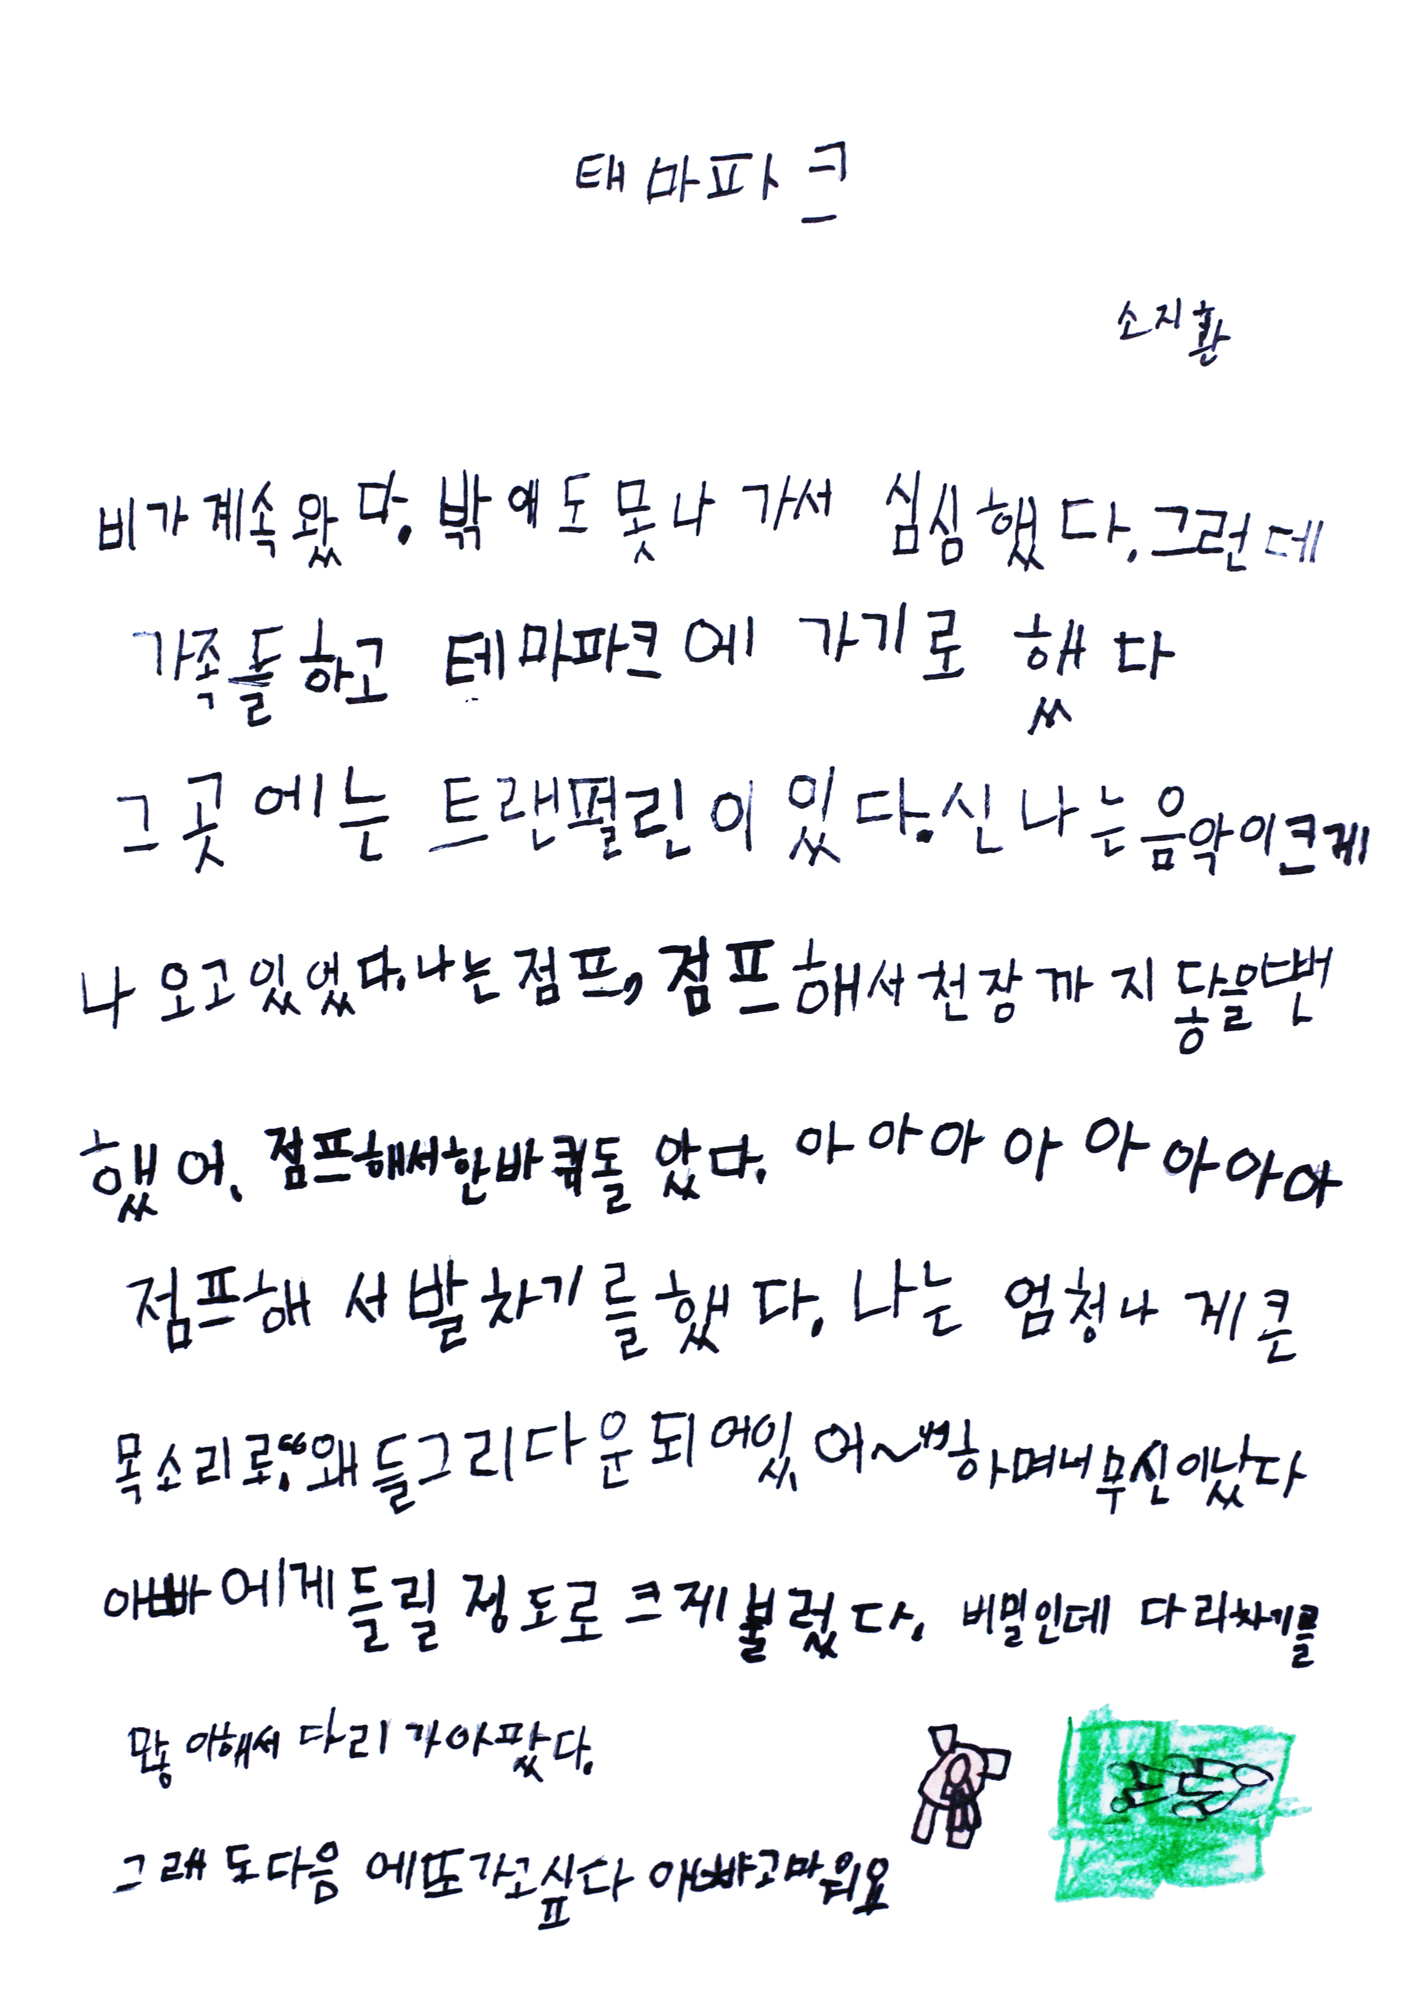 태마파크
소지환
비가 계속 왔다. 밖에도 못 나가서 심심했다. 그런데
가족들하고 테마파크에 가기로 했다
그곳에는 트랜펄린이 있다. 신나는 음악이 크게
나오고 있었다. 나는 점프, 점프해서 천장까지 닿을 뻔
했어. 점프해서 한바퀴 돌았다. 아아아아아아아아
점프해서 발차기를 했다. 나는 엄청나게 큰
목소리로 "왜 들 그리 다운되어있어~" 하며 너무 신이 났다
아빠에게 들릴 정도로 크게 불렀다. 비밀인데 다리차기를
많아해서 다리가 아팠다.
그래도 다음에 또 가고 싶다 아빠 고마워요